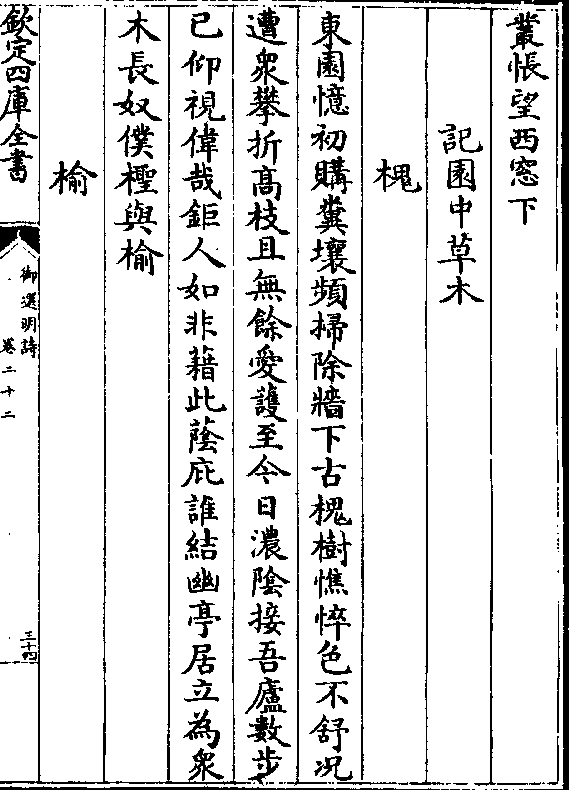 叢悵望西窓下
記園中草木
槐
東園憶初購糞壤頻掃除牆下古槐樹憔悴色不舒况
遭衆攀折高枝且無餘愛護至今日濃陰接吾廬數步
已仰視偉哉鉅人如非藉此蔭庇誰結幽亭居立為衆
木長奴僕檉與榆
榆
欽定四庫全書
御選明詩
卷二十二
三十四